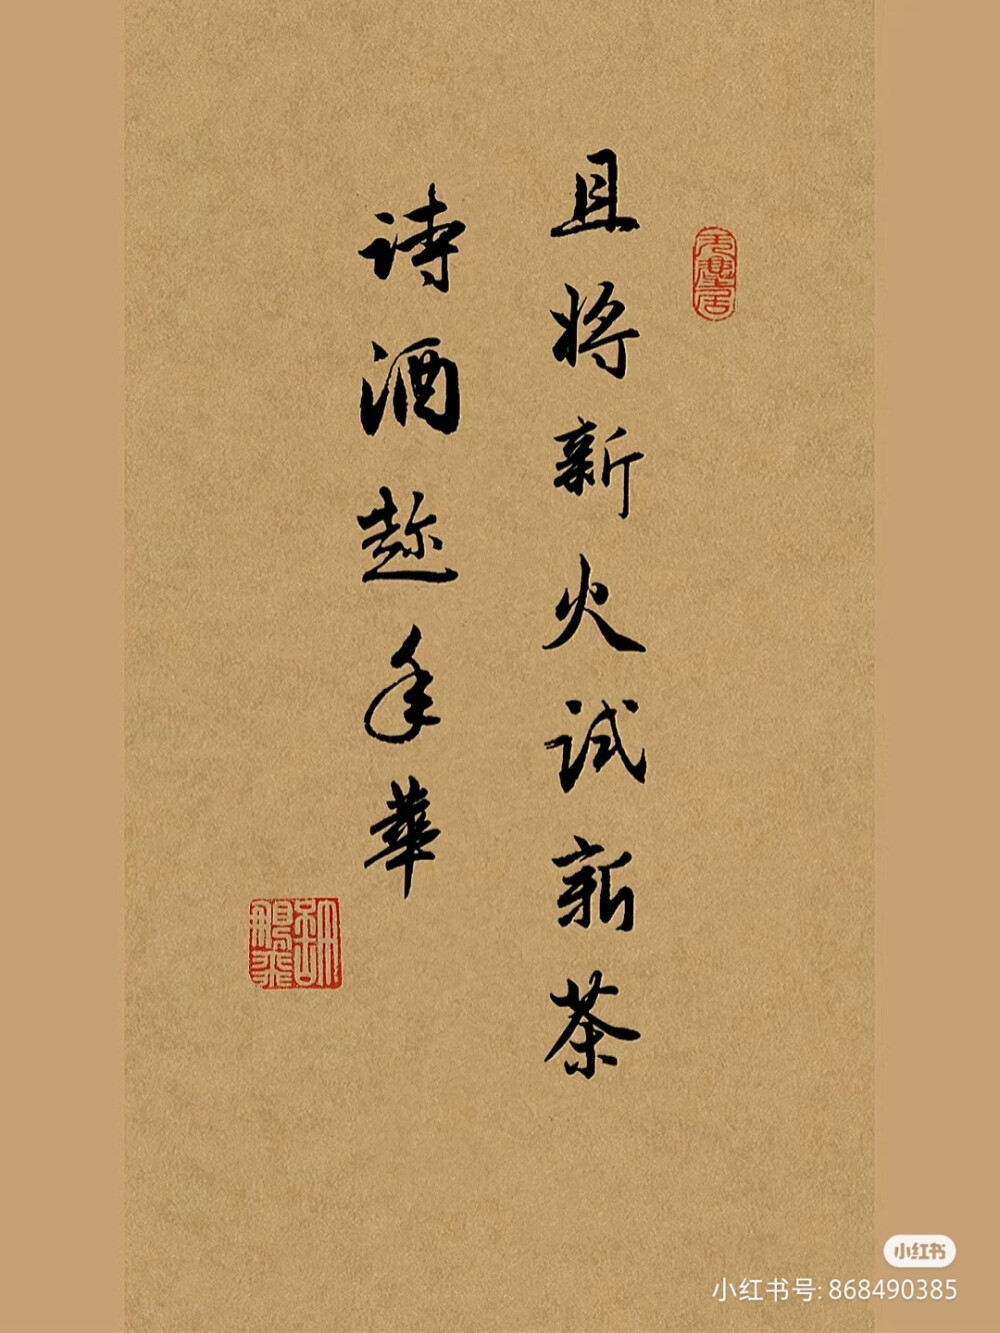 且将新火试新茶
诗酒趁年華
小红书
小红书号: 868490385